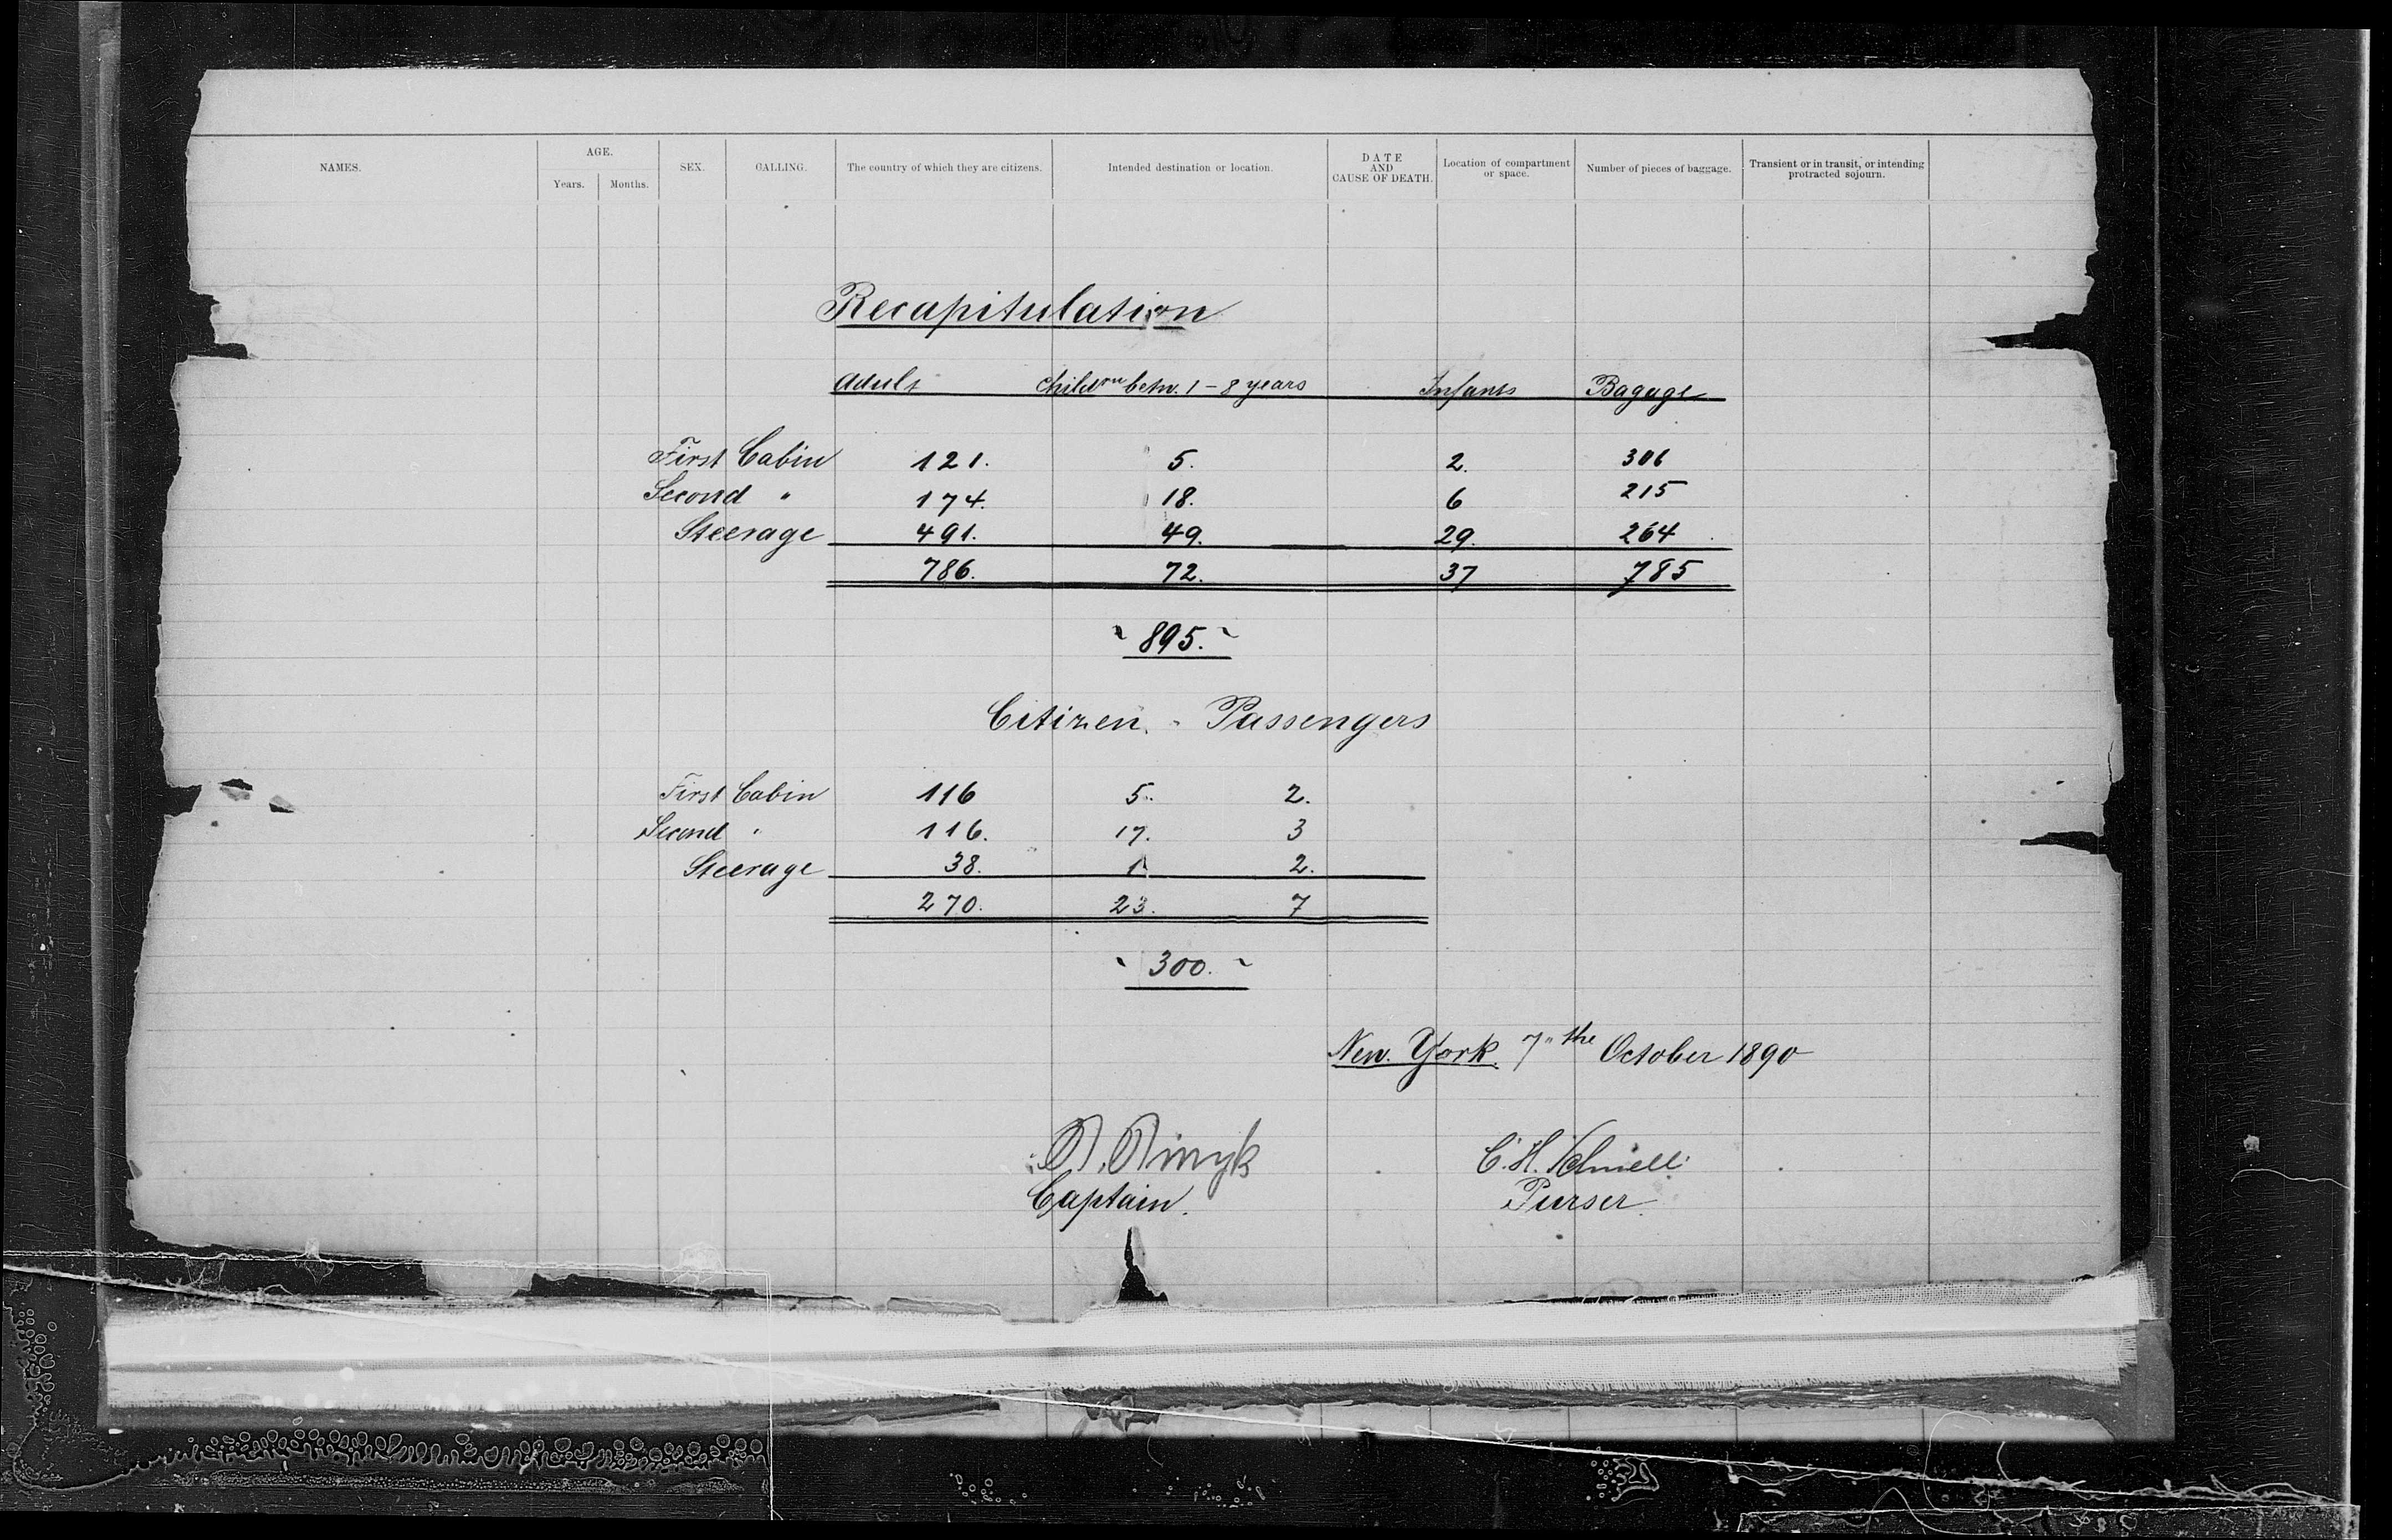 NAMES. AGE. SEX. CALLING. The country of which they are citizens. Intended destination or location. DATE AND CAUSE OF DEATH. Location of compartment or space. Number of pieces of baggage. Transient or in transit, or intending protracted sojourn.
Years. Months.
Recapitulation
Adults Children betw. 1 - 8 years Infants Bagage
First Cabin 121. 5. 2. 306
Second " 174. 18. 6 215
Steerage 491. 49. 29. 264
786. 72. 37 785
~ 895. ~
Citizen. - Passengers
First Cabin 116 5. 2.
Second " 116. 17. 3
Steerage 38. 1 2.
270. 23. 7
~ 300. ~
New. York. 7" the October 1890
Captain.
C. H.
Purser